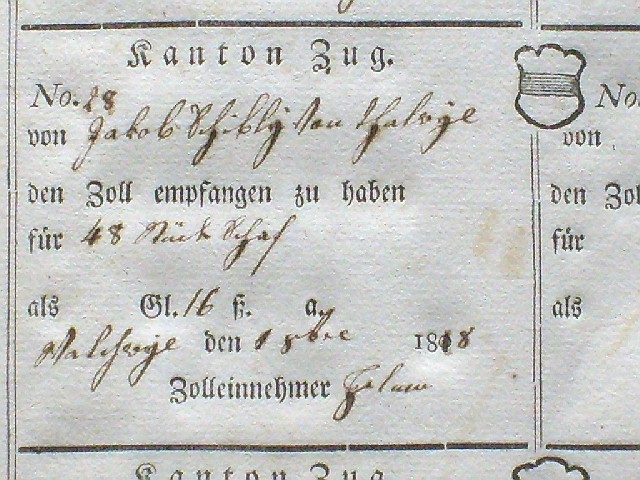 Kanton Zug.
No. 28
No.
von Jakob Schibly von Thalwyl
von
den Zoll empfangen zu haben
den Zol
für 48 Stück Schaf
für
als Gl. 16 ß. a.
als
Walchwyl den 1 8bre 1818
Zolleinnehmer
Kanton Zug